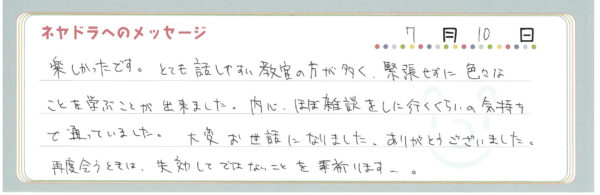 ネヤドラへのメッセージ
7 月 10 日
楽しかったです。とても話しやすい教官の方が多く、緊張せずに色々な
ことを学ぶことが出来ました。内心、ほぼ雑談をしに行くくらいの気持ち
で通っていました。大変お世話になりました、ありがとうございました。
再度会うときは、失効してではないことを祈ります〜。